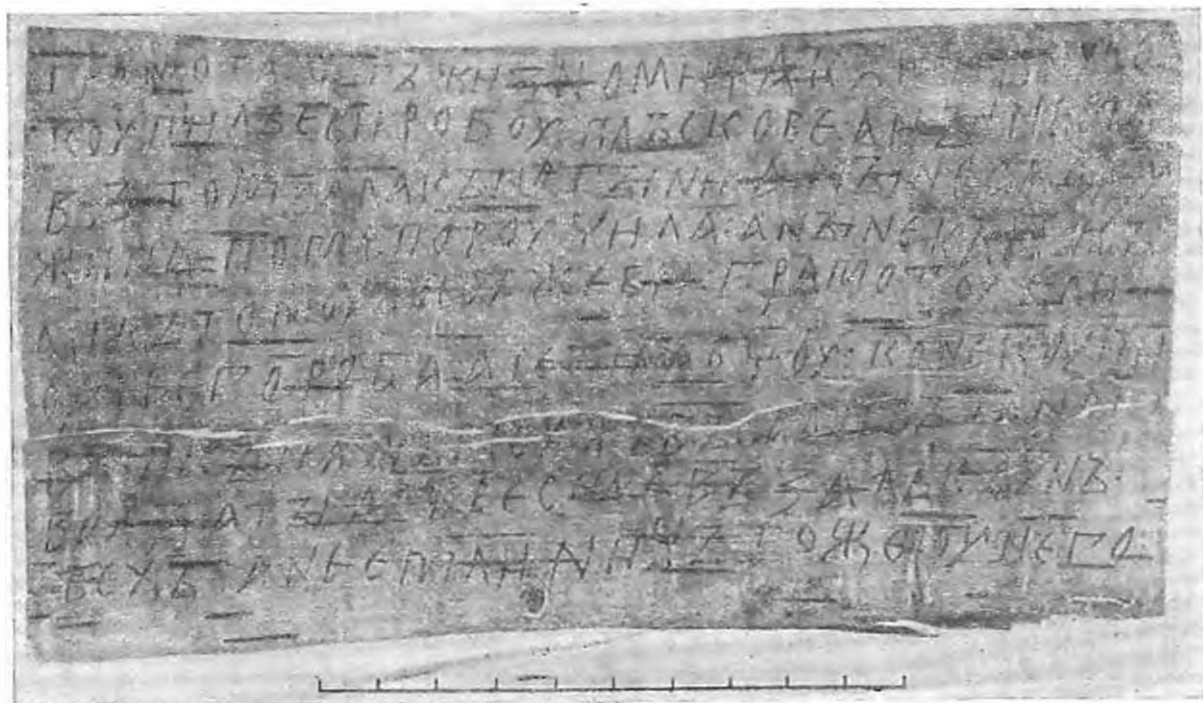 грамота : ѡтъ жизномира : къ микоуле :
коупилъ еси : робоу : плъскове : а ныне мѧ :
въ томъ : ѧла кънѧгыни : а ныне сѧ дроу
жина : по мѧ пороучила : а ныне ка : посъ
ли къ томоу : моужеви : грамотоу : е ли
оу него роба : а се ти хочоу : коне коупивъ :
и кънѧжъ моужъ въсадивъ : та на съ
воды : а ты атче еси не възалъ коунъ :
техъ : а не емли : ничъто же оу него :